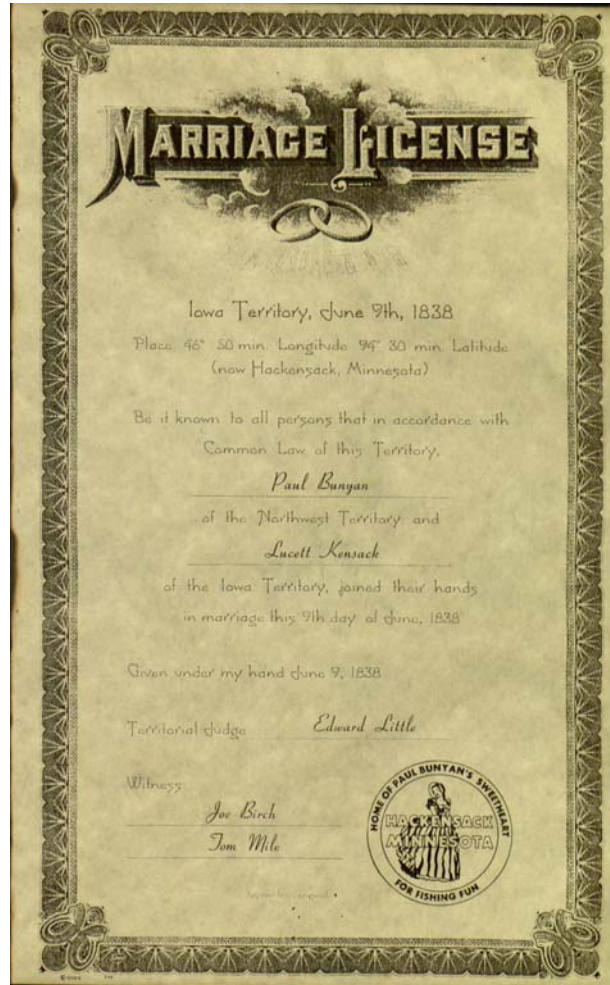 MARRIAGE LICENSE
Iowa Territory, June 9th, 1838
Place 46° 50 min. Longitude 94° 30 min. Latitude
(now Hackensack, Minnesota)
Be it known to all persons that in accordance with
Common Law of this Territory,
Paul Bunyan
of the Northwest Territory and
Lucett Kensack
of the Iowa Territory, joined their hands
in marriage this 9th day of June, 1838
Given under my hand June 9, 1838
Territorial Judge Edward Little
Witness
Joe Birch
Tom Mile
HOME OF PAUL BUNYAN'S SWEETHEART
HACKENSACK
MINNESOTA
FOR FISHING FUN